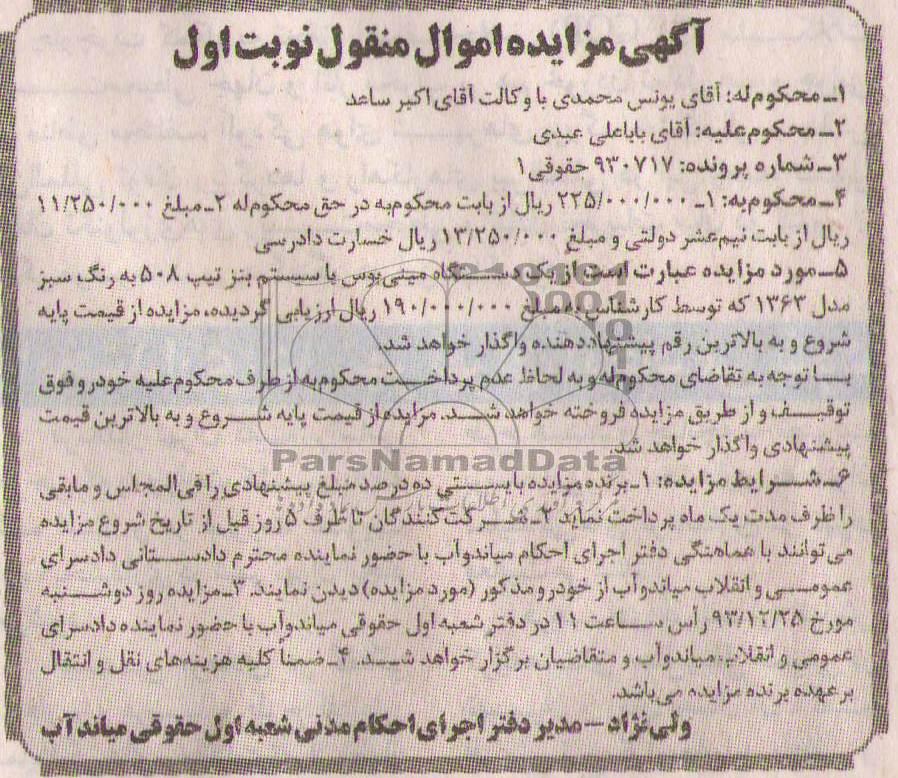 آگهی مزایده اموال منقول نوبت اول
۱ـ محکوم‌له: آقای یونس محمدی با وکالت آقای اکبر ساعد
۲ـ محکوم‌علیه: آقای باباعلی عبدی
۳ـ شماره پرونده: ۹۳۰۷۱۷ حقوقی ۱
۴ـ محکوم‌به: ۱ـ ۲۲۵/۰۰۰/۰۰۰ ریال از بابت محکوم‌به در حق محکوم‌له ۲ـ مبلغ ۱۱/۲۵۰/۰۰۰
ریال از بابت نیم‌عشر دولتی و مبلغ ۱۳/۲۵۰/۰۰۰ ریال خسارت دادرسی
۵ـ مورد مزایده عبارت است از یک دستگاه مینی‌بوس با سیستم بنز تیپ ۵۰۸ به رنگ سبز
مدل ۱۳۶۳ که توسط کارشناس به مبلغ ۱۹۰/۰۰۰/۰۰۰ ریال ارزیابی گردیده، مزایده از قیمت پایه
شروع و به بالاترین رقم پیشنهاددهنده واگذار خواهد شد.
با توجه به تقاضای محکوم‌له و به لحاظ عدم پرداخت محکوم‌به از طرف محکوم‌علیه خودرو فوق
توقیف و از طریق مزایده فروخته خواهد شد. مزایده از قیمت پایه شروع و به بالاترین قیمت
پیشنهادی واگذار خواهد شد.
۶ـ شرایط مزایده: ۱ـ برنده مزایده بایستی ده درصد مبلغ پیشنهادی را فی‌المجلس و مابقی
را ظرف مدت یک ماه پرداخت نماید ۲ـ شرکت‌کنندگان تا ظرف ۵ روز قبل از تاریخ شروع مزایده
می‌توانند با هماهنگی دفتر اجرای احکام میاندوآب با حضور نماینده محترم دادستانی دادسرای
عمومی و انقلاب میاندوآب از خودرو مذکور (مورد مزایده) دیدن نمایند. ۳ـ مزایده روز دوشنبه
مورخ ۹۳/۱۲/۲۵ رأس ساعت ۱۱ در دفتر شعبه اول حقوقی میاندوآب با حضور نماینده دادسرای
عمومی و انقلاب میاندوآب و متقاضیان برگزار خواهد شد. ۴ـ ضمنا کلیه هزینه‌های نقل و انتقال
بر عهده برنده مزایده می‌باشد.
ولی‌نژاد – مدیر دفتر اجرای احکام مدنی شعبه اول حقوقی میاندآب
ParsNamadData